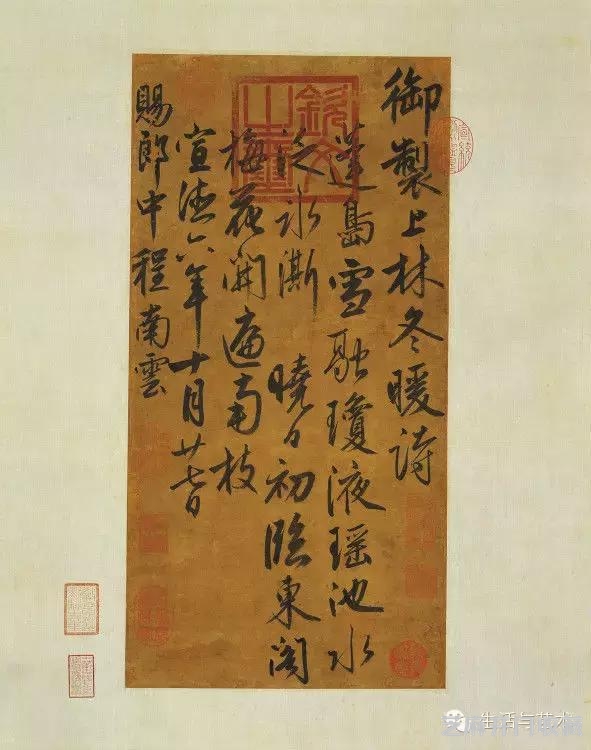 御製上林冬暖诗
蓬島雪融瓊液瑶池水
泛冰澌 曉日初臨東閣
梅花開遍南枝
宣德六年十月廿七日
賜郎中程南雲
生活与艺术